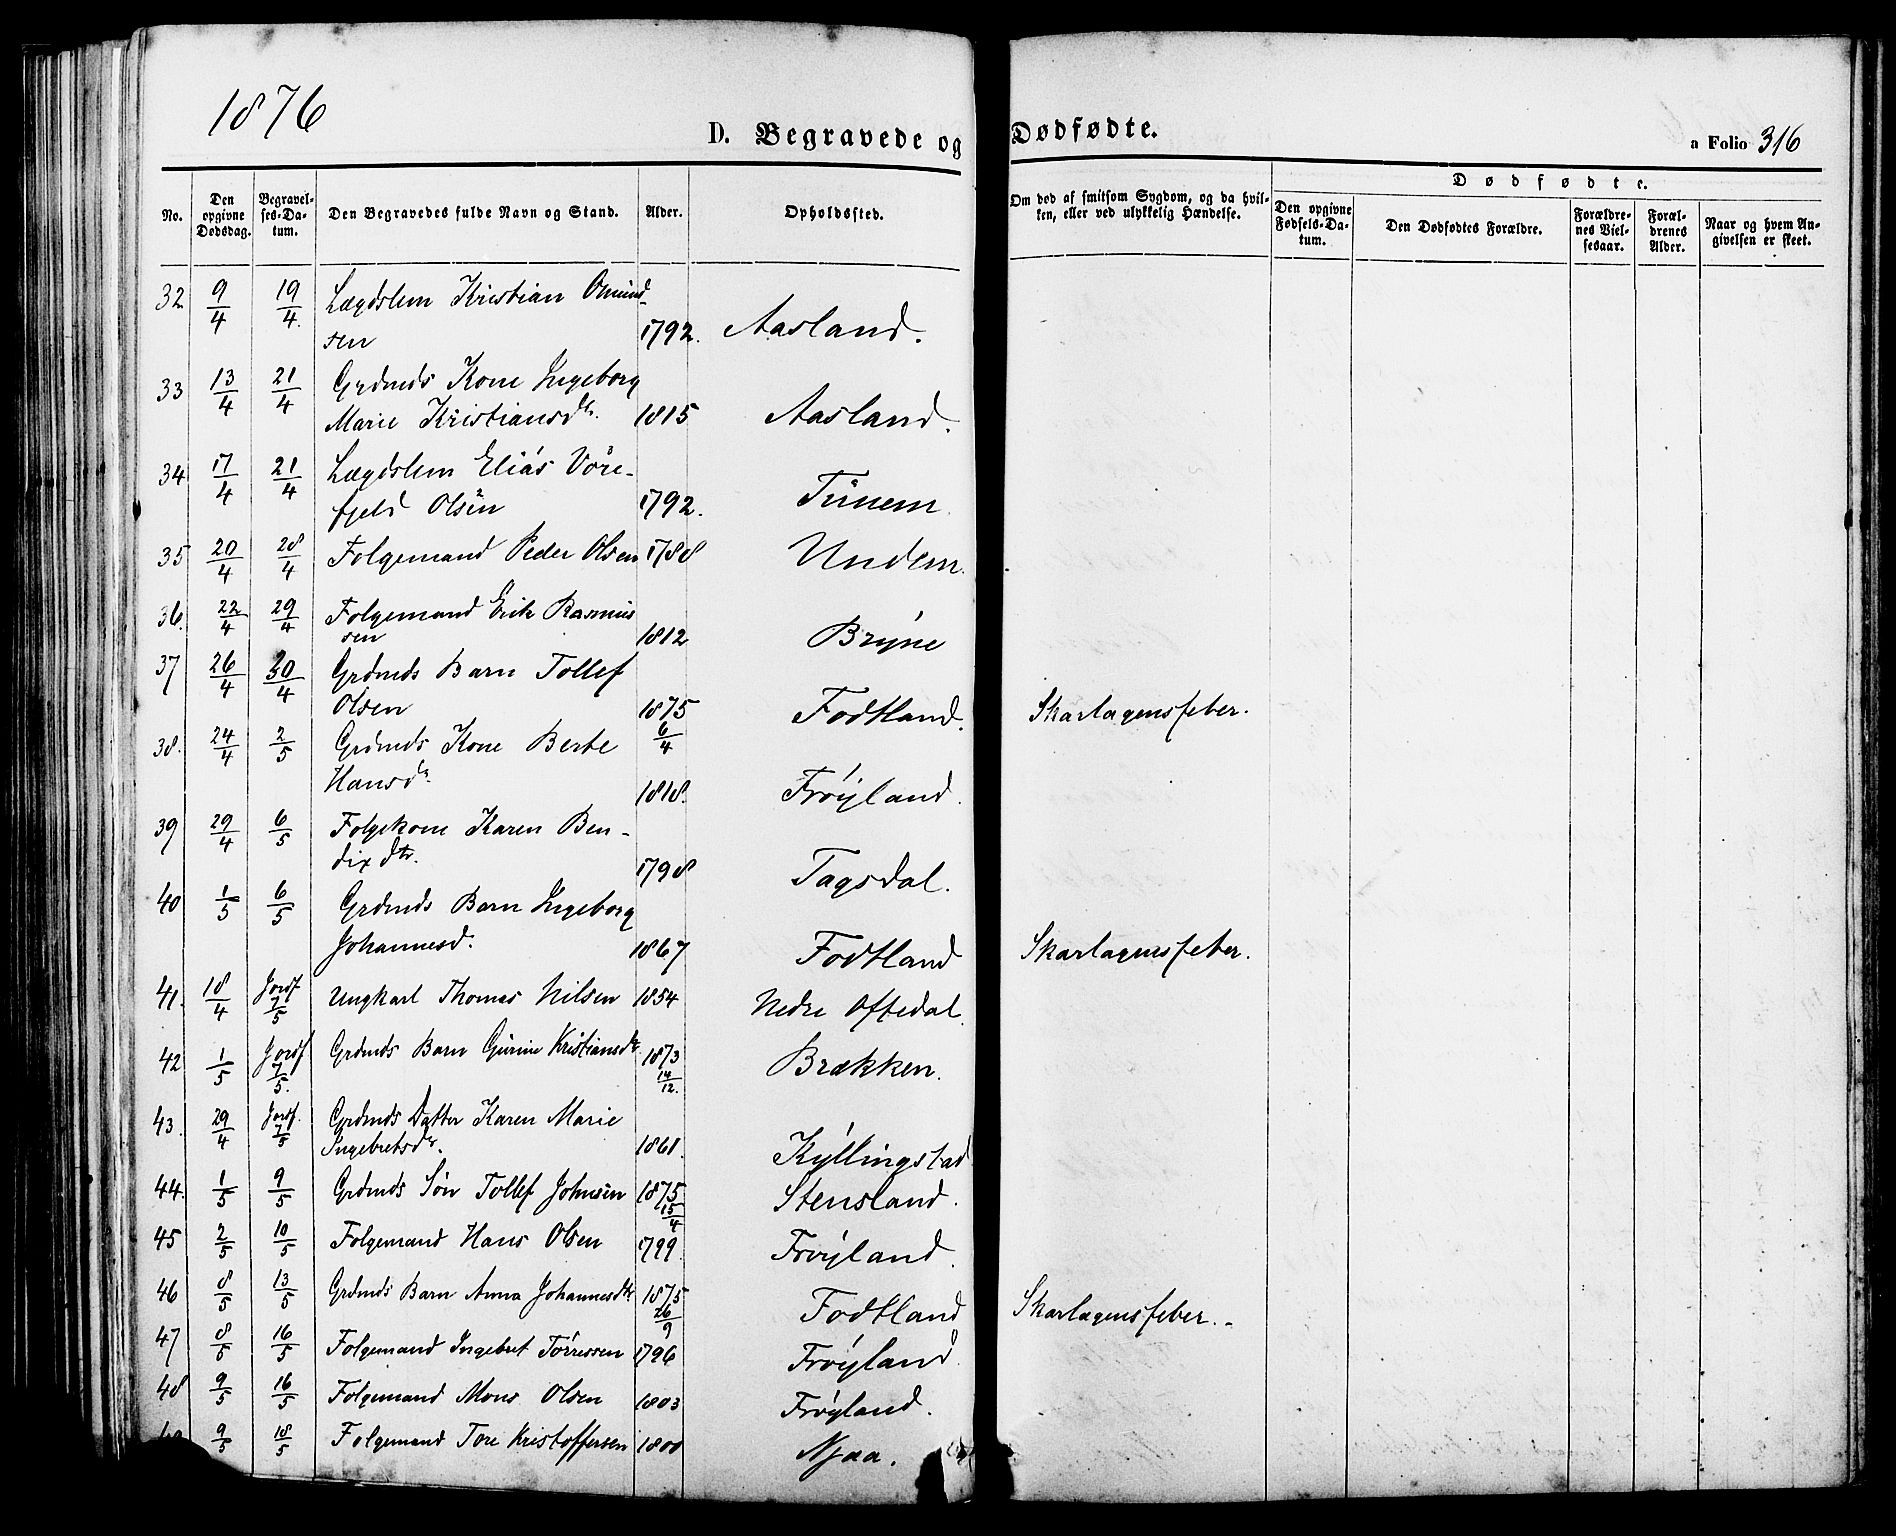 1876
D. Begravede og Dødfødte.
a Folio 316
No.
Den opgivne Dødsdag.
Begravelses-Datum.
Den Begravedes fulde Navn og Stand.
Alder.
Opholdssted.
Om død af smitsom Sygdom, og da hvilken, eller ved ulykkelig Hændelse.
Dødfødte.
Den opgivne Fødsels-Datum.
Den Dødfødtes Forældre.
Forældrenes Vielsesaar.
Forældrenes Alder.
Naar og hvem Angivelsen er skeet.
32 9/4 19/4. Lægdslem Kristian Omund-
sen 1792. Aasland.
33 13/4 21/4 Grdmds Kone Ingeborg
Marie Kristiansdtr. 1815 Aasland.
34 17/4 21/4 Lægdslem Elias Vore-
fjeld Olsen 1792. Tunem
35 20/4 28/4 Folgemand Peder Olsen 1788 Undem.
36. 22/4 29/4 Folgemand Erik Rasmus
sen 1812 Bryne
37 26/4 30/4 Grdmds Barn Tollef
Olsen 1875 6/4 Fodtland. Skarlagensfeber.
38. 24/4 2/5 Grdmds Kone Berte
Hansdr. 1818. Frøyland.
39 29/4 6/5 Folgekone Karen Ben-
dixdtr. 1798 Tagsdal.
40 1/5 6/5 Grdmds Barn Ingeborg
Johannesd. 1867 Fodtland Skarlagensfeber.
41. 18/4 Jordf 7/5 Ungkarl Thomas Nilsen 1854 Nedre Oftedal.
42 1/5 Jordf 7/5. Grdmds Barn Gurine Kristiansdtr 1873 14/12. Brækken.
43. 29/4 Jordf. 7/5 Grdmds Datter Karen Marie
Ingebretsdr. 1861. Kyllingstad
44. 1/5 9/5 Grdmds Søn Tollef Johnsen 1875 15/4 Stensland.
45 2/5 10/5 Folgemand Hans Olsen 1799. Frøyland.
46 8/5 13/5 Grdmds Barn Anna Johannesdtr 1875 26/9 Fodtland Skarlagensfeber.-
47 8/5 16/5 Folgemand Ingebret Tørressen 1796 Frøyland.
48 9/5 16/5 Folgemand Mons Olsen 1803 Frøyland.
9/5 18/5 Folgemand Tore Kristoffersen 1800 Njaa.